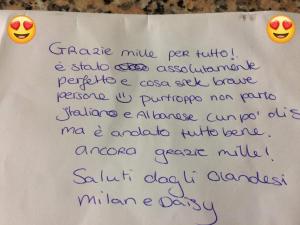 Grazie mille per tutto!
è stato assolutamente
perfetto e cosa siete brave
persone purtroppo non parlo
Italiano e Albanese (un po'
ma è andato tutto bene.
ancora grazie mille!
Saluti dagli Olandesi
Milan e Daisy